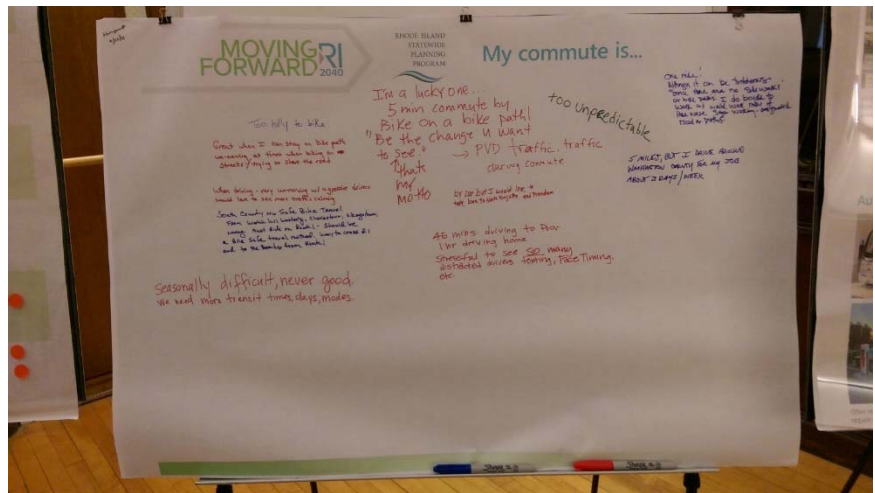 MOVING
FORWARD RI
2040
RHODE ISLAND
STATEWIDE
PLANNING
PROGRAM
My commute is...
Too hilly to bike
Great when I can stay on bike path
un-nerving at times when biking on
streets / trying to share the road
When driving - very unnerving w/ aggressive drivers
would love to see more traffic calming
South County Safe Bike Travel
From Watch Hill Westerly, Charlestown,
must Ride on Route 1 - Should be
a Bike Safe travel method. ways to cross Rt 1
and to the Beaches from Route 1
Seasonally difficult, never good.
We need more transit times, days, modes.
I'm a lucky one...
5 min commute by
Bike on a bike path!
"Be the change u want
to see."
thats
my
motto
→ PVD traffic, traffic
during commute
by car but I would love to
take bus to
45 mins driving to Prov
1 hr driving home
Stressful to see SO many
distracted drivers texting, Face Timing,
etc.
too unpredictable
One mile!
Although it can be
since there are no sidewalks
or bike paths I do
work w/
road or paths.
5 MILES, BUT I DRIVE AROUND
WASHINGTON COUNTY FOR MY JOB
ABOUT 2 DAYS/WEEK
Sharpie
Sharpie